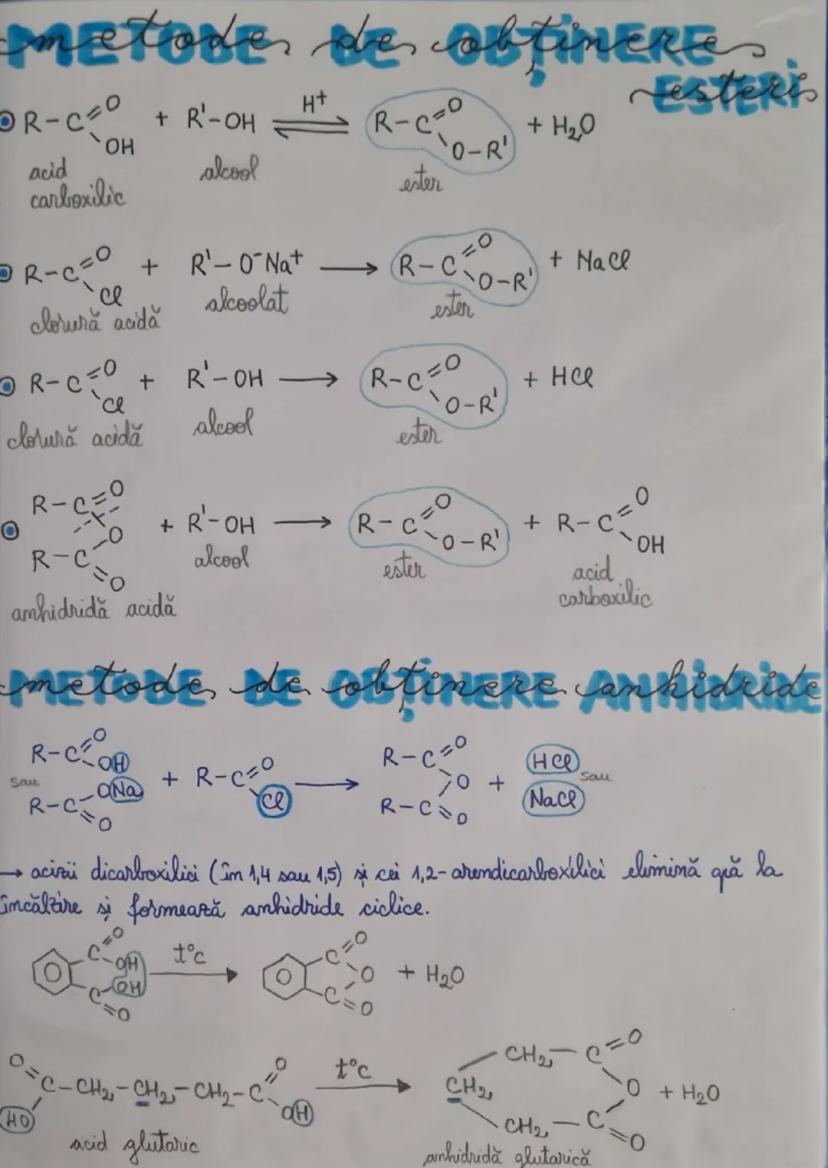 metode de obținere
esteri
R-C=O OH + R'-OH ⇌ H+ R-C=O O-R' + H2O
acid carboxilic alcool ester
R-C=O Cl + R'-O-Na+ → R-C=O O-R' + NaCl
clorură acidă alcoolat ester
R-C=O Cl + R'-OH → R-C=O O-R' + HCl
clorură acidă alcool ester
R-C=O O R-C=O + R'-OH → R-C=O O-R' + R-C=O OH
anhidridă acidă alcool ester acid carboxilic
metode de obținere anhidride
R-C=O OH sau R-C=O ONa + R-C=O Cl → R-C=O O R-C=O + HCl sau NaCl
→ acizii dicarboxilici (în 1,4 sau 1,5) și cei 1,2-arendicarboxilici elimină apă la
încălzire și formează anhidride ciclice.
C=O OH C=O OH t°C → C=O O C=O + H2O
O=C HO -CH2-CH2-CH2-C=O OH t°C → CH2 CH2-C=O O CH2-C=O + H2O
acid glutaric anhidridă glutarică